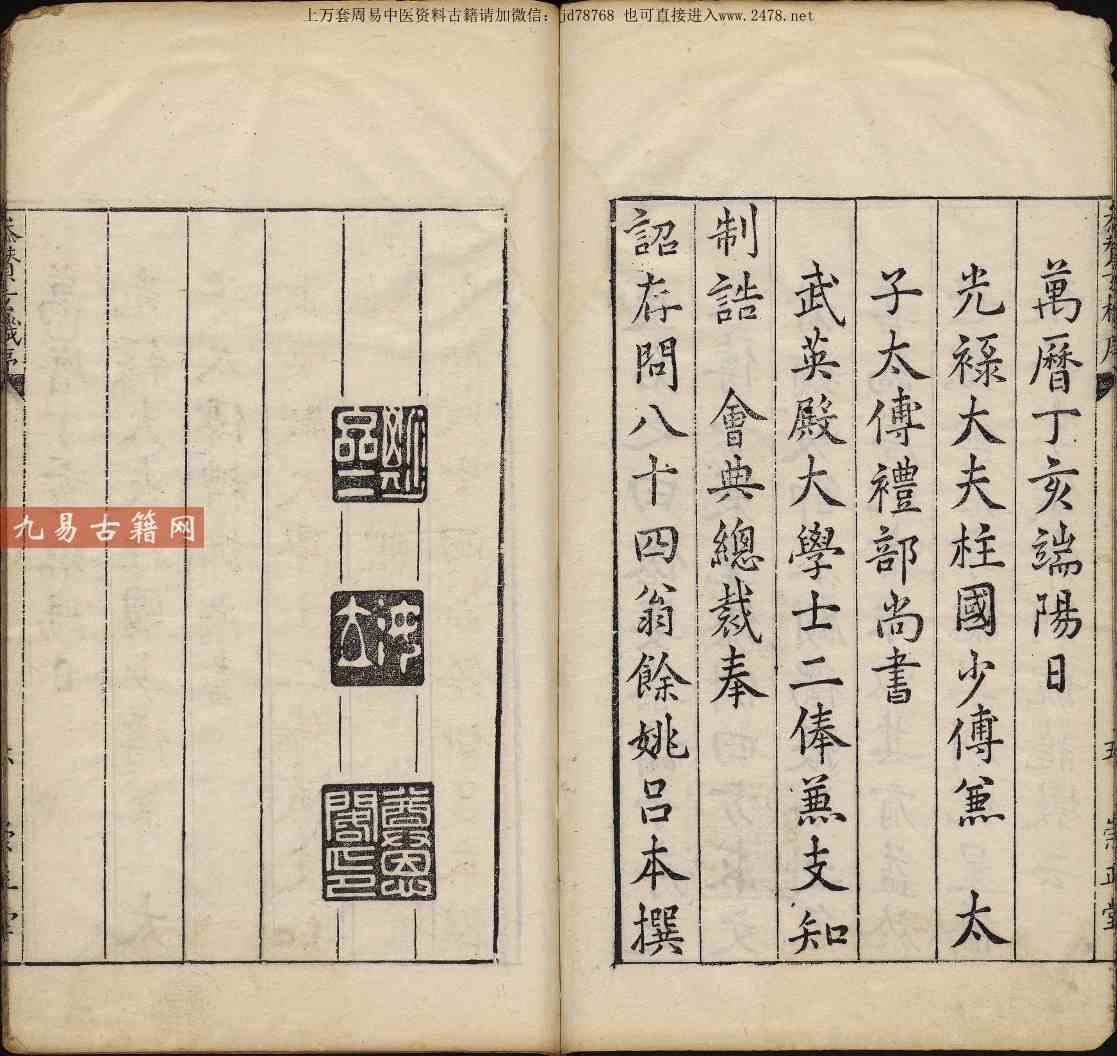 上万套周易中医资料古籍请加微信：jd78768 也可直接进入www.2478.net
萬曆丁亥端陽日
光祿大夫柱國少傅兼 太
子太傅禮部尚書
武英殿大學士二俸兼支知
制誥 會典總裁奉
詔存問八十四翁餘姚呂本撰
九易古籍网